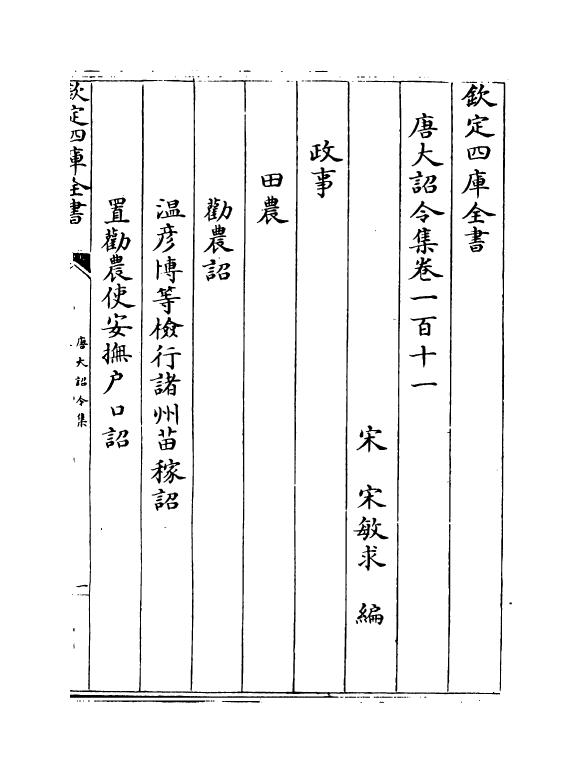 欽定四庫全書
唐大詔令集卷一百十一
宋 宋敏求 編
政事
田農
勸農詔
温彦博等檢行諸州苗稼詔
置勸農使安撫户口詔
欽定四庫全書
唐大詔令集
一